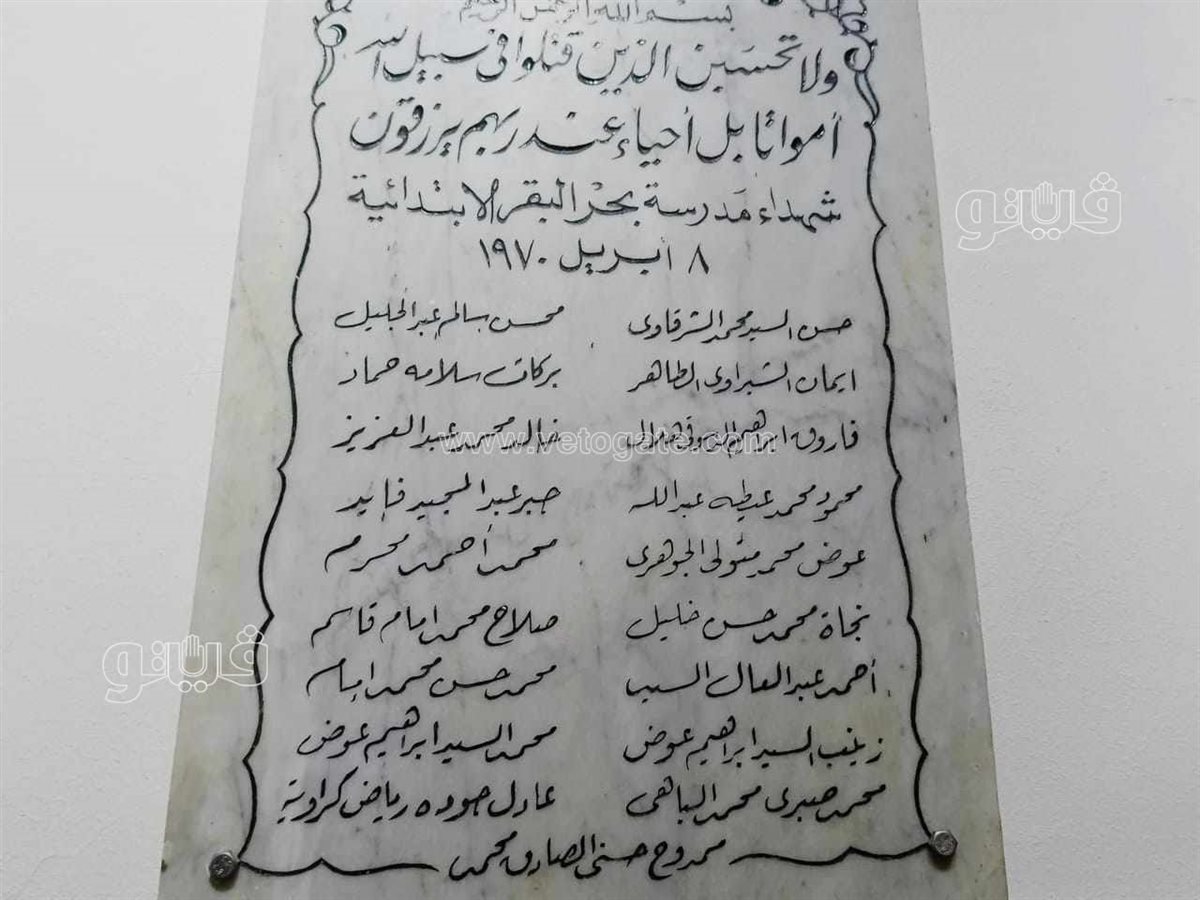 بسم الله الرحمن الرحيم
ولا تحسبن الذين قتلوا في سبيل الله
أمواتا بل أحياء عند ربهم يرزقون
شهداء مدرسة بحر البقر الابتدائية
٨ أبريل ١٩٧٠
حسن السيد محمد الشرقاوى
محسن سالم عبد الجليل
ايمان الشبراوى الطاهر
بركات سلامه حماد
فاروق ابراهيم الدسوقى هلال
خالد محمد عبد العزيز
محمود محمد عطيه عبد الله
جبر عبد المجيد فايد
عوض محمد متولى الجوهرى
محمد أحمد محرم
نجاة محمد حسن خليل
صلاح محمد امام قاسم
أحمد عبد العال السيد
محمد حسن محمد امام
زينب السيد ابراهيم عوض
محمد السيد ابراهيم عوض
محمد صبرى محمد الباهى
عادل جوده رياض كراويه
ممدوح حسنى الصادق محمد
www.vetogate.com
ڤيتو
ڤيتو